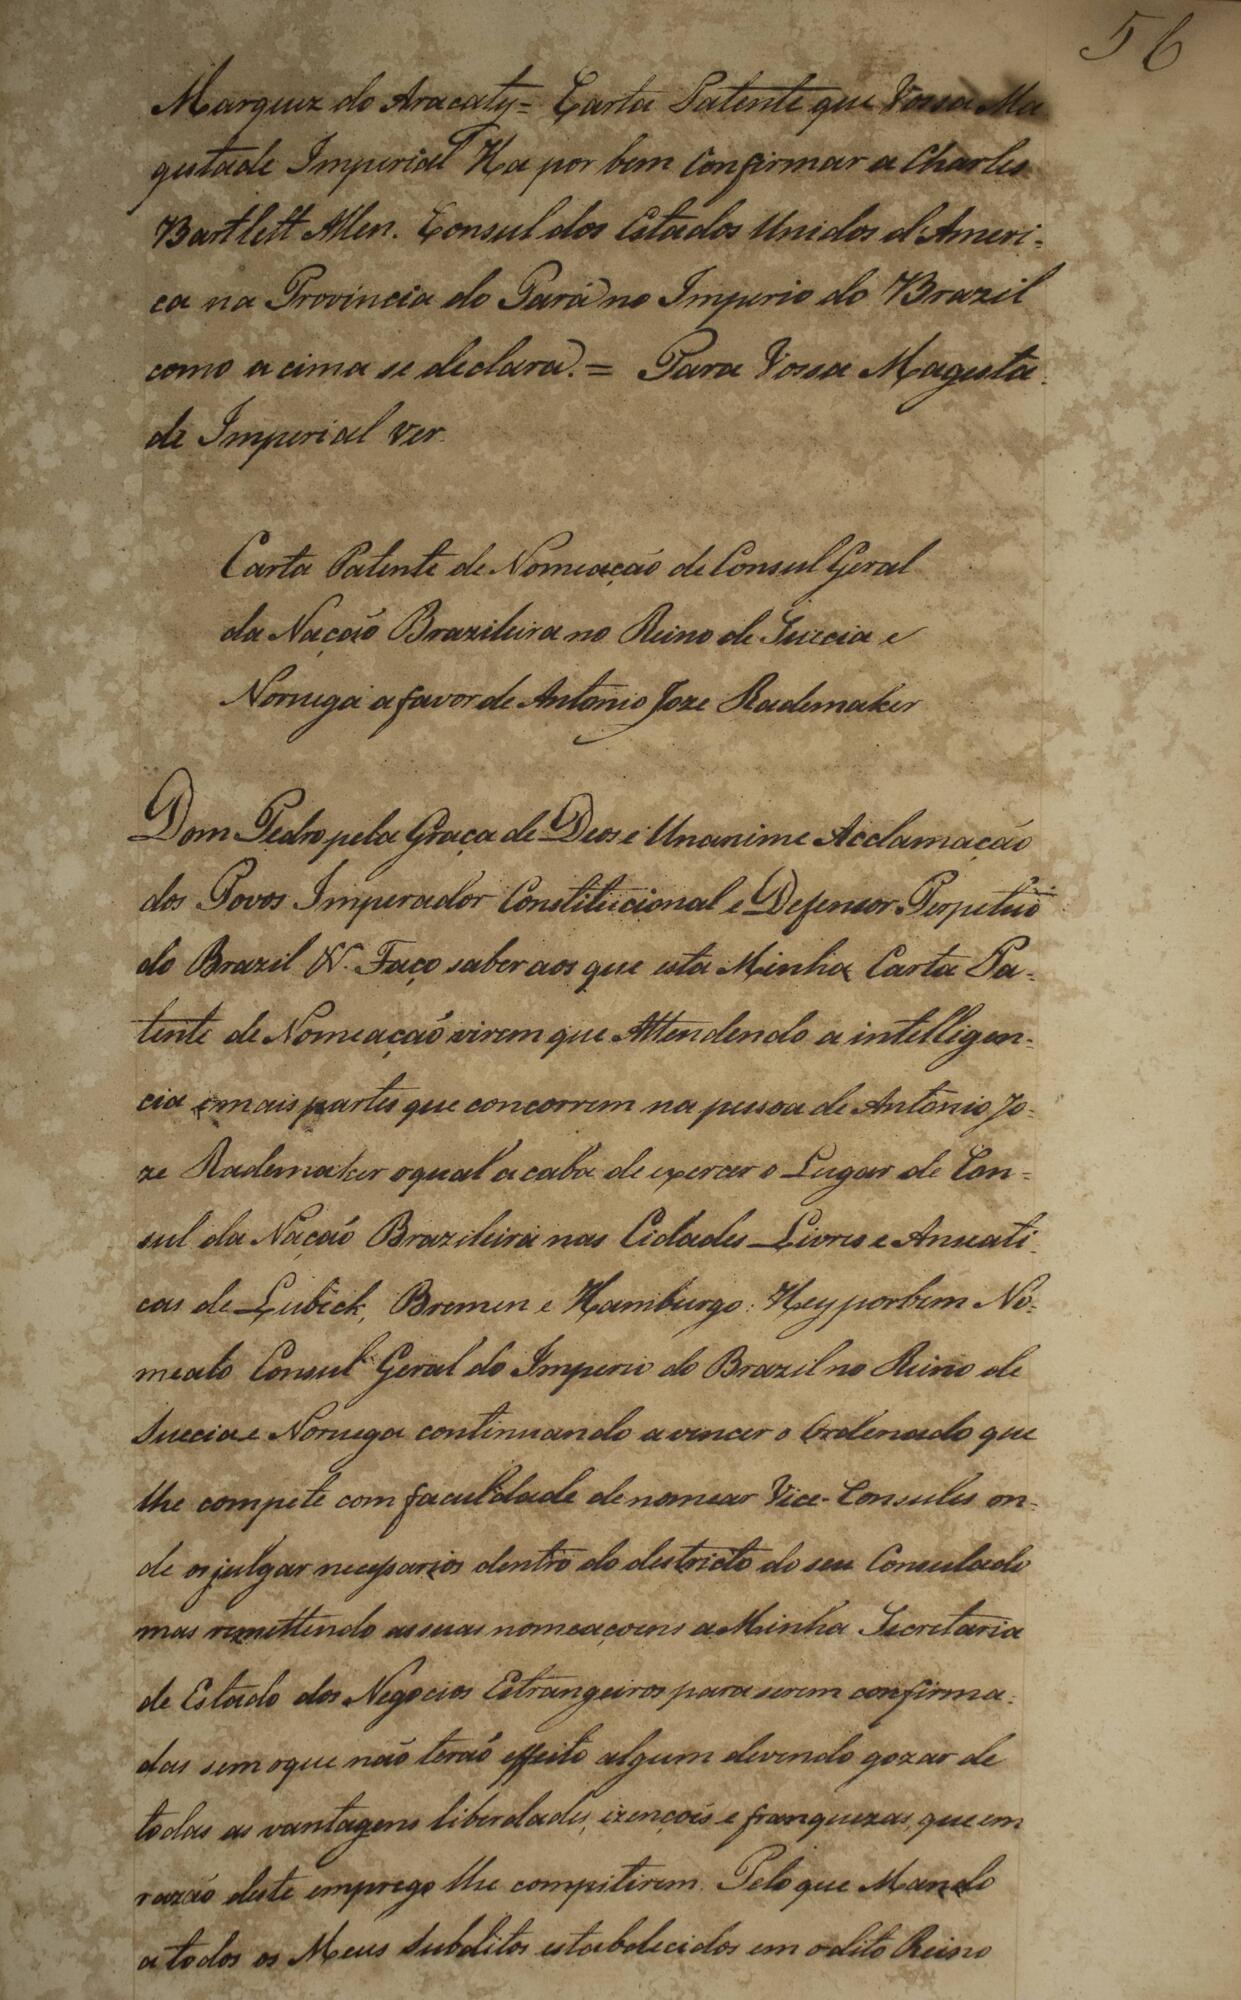 56
Marquez do Aracaty = Carta Patente que Vossa Ma
gestade Imperial Ha por bem Confirmar a Charles
Bartlett Allen. Consul dos Estados Unidos d'Ameri-
ca na Provincia do Pará no Imperio do Brazil
como acima se declara. = Para Vossa Magesta-
de Imperial ver.
Carta Patente de Nomeação de Consul Geral
da Nação Brazileira no Reino de Suecia e
Noruega a favor de Antonio Joze Rademaker
Dom Pedro pela Graça de Deos e Unanime Acclamação
dos Povos Imperador Constitucional e Defensor Perpetuo
do Brazil &. Faço saber aos que esta Minha Carta Pa-
tente de Nomeação virem que Attendendo a intelligen-
cia e mais partes que concorrem na pessoa de Antonio Jo-
ze Rademaker o qual acaba de exercer o Lugar de Con-
sul da Nação Brazileira nas Cidades Livres e Anseati-
cas de Lubeck, Bremen e Hamburgo: Hey por bem No-
mealo Consul Geral do Imperio do Brazil no Reino de
Suecia e Noruega continuando a vencer o Ordenado que
lhe compete com faculdade de nomear Vice-Consules on-
de os julgar necessarios dentro do destricto do seu Consulado
mas remettendo as suas nomeaçoens a Minha Secretaria
de Estado dos Negocios Estrangeiros para serem confirma-
das sem o que não terão effeito algum devendo gozar de
todas as vantagens liberdades, izençoes e franquezas, que em
razão deste emprego lhe compitirem. Pelo que Mando
a todos os Meus Subditos estabelecidos em o dito Reino